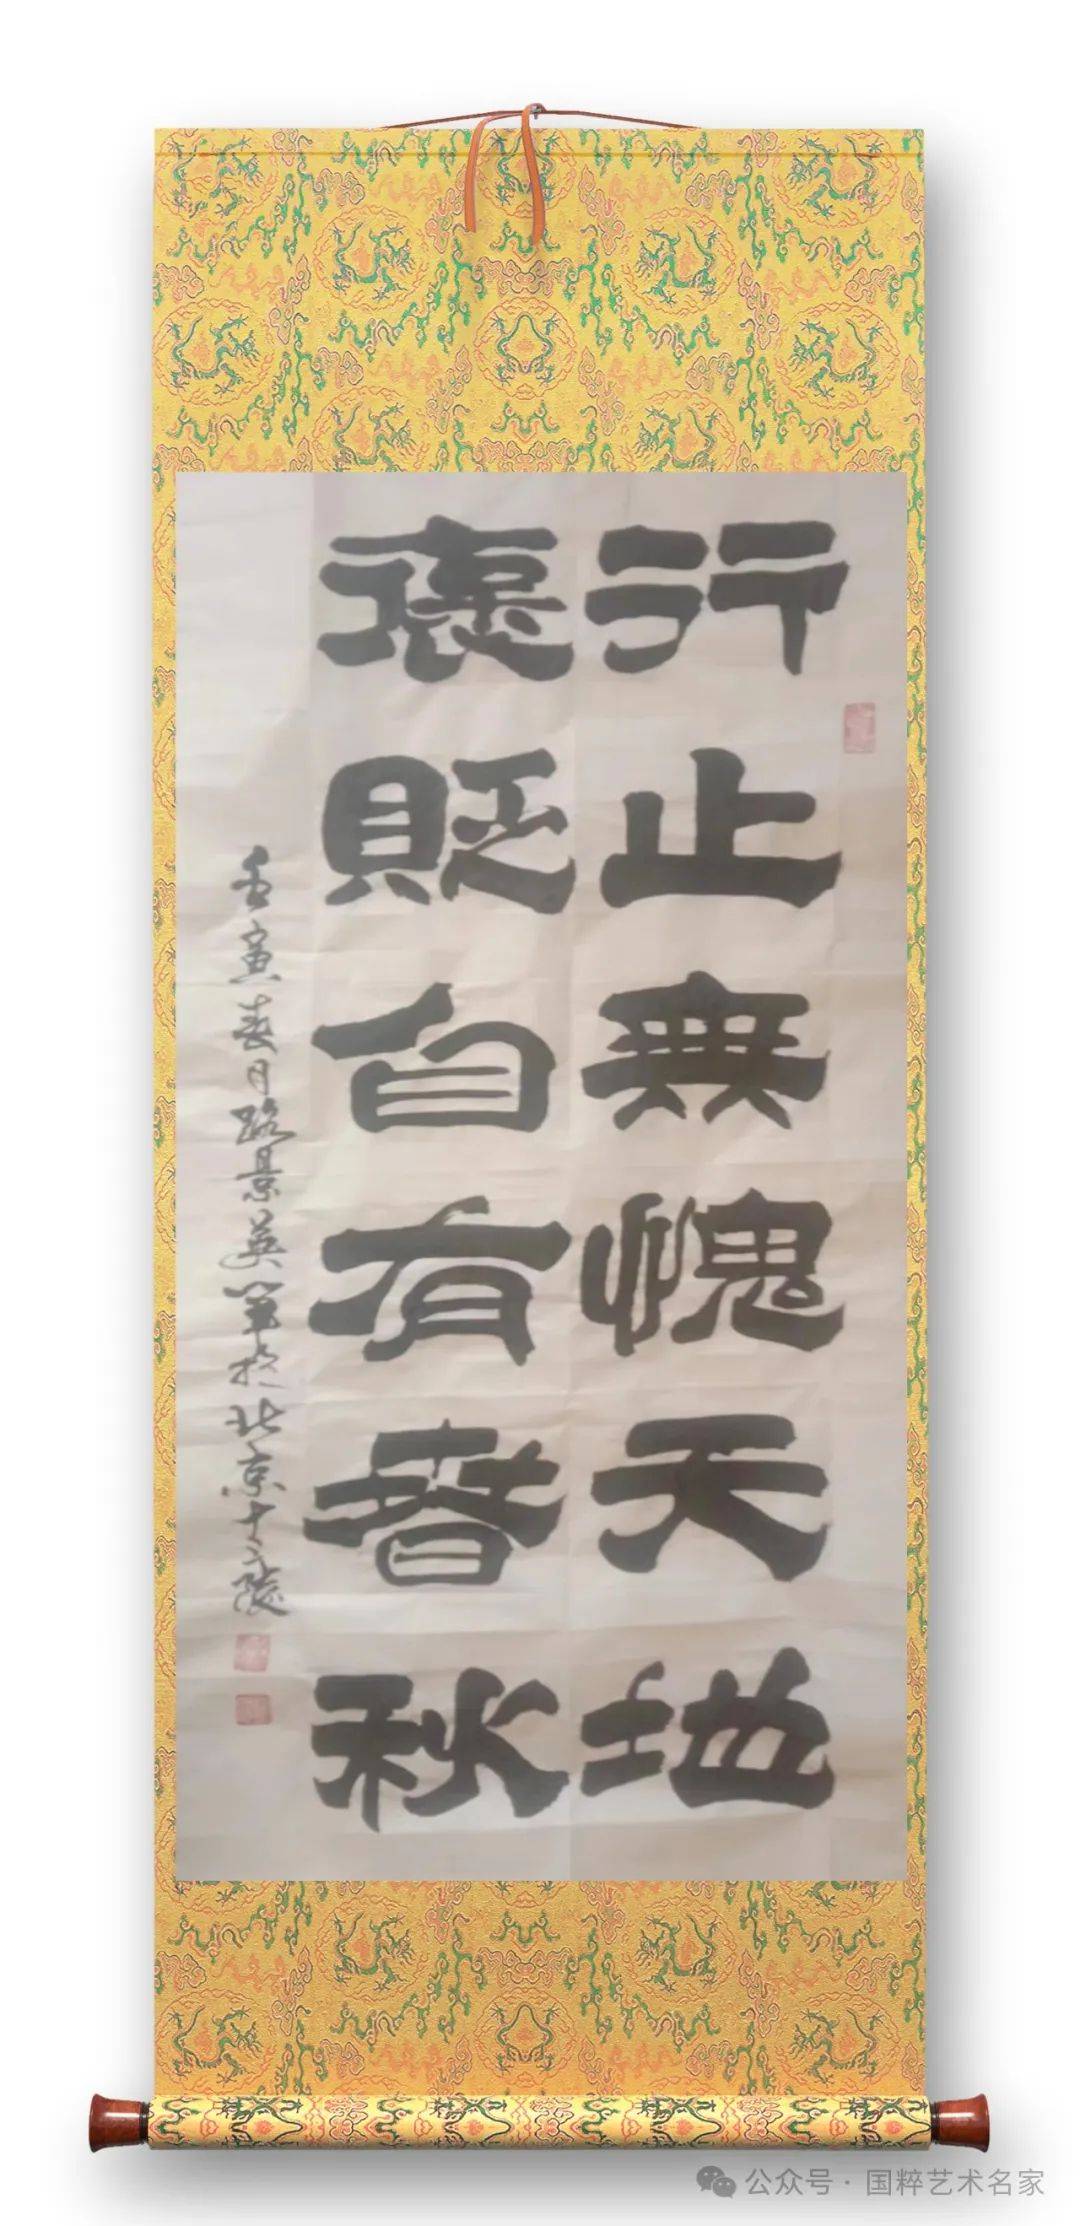 行止無愧天地
褒貶自有春秋
壬寅春月路景英筆於北京十三陵
公众号 · 国粹艺术名家